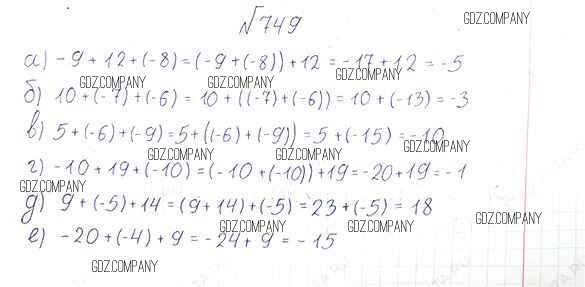 №749
GDZ.COMPANY
а) -9 + 12 + (-8) = (-9 + (-8)) + 12 = -17 + 12 = -5
GDZ.COMPANY GDZ.COMPANY GDZ.COMPANY
б) 10 + (-7) + (-6) = 10 + ((-7) + (-6)) = 10 + (-13) = -3
в) 5 + (-6) + (-9) = 5 + ((-6) + (-9)) = 5 + (-15) = -10
GDZ.COMPANY GDZ.COMPANY GDZ.COMPANY
г) -10 + 19 + (-10) = (-10 + (-10)) + 19 = -20 + 19 = -1
GDZ.COMPANY
д) 9 + (-5) + 14 = (9 + 14) + (-5) = 23 + (-5) = 18
GDZ.COMPANY GDZ.COMPANY GDZ.COMPANY
е) -20 + (-4) + 9 = -24 + 9 = -15
GDZ.COMPANY